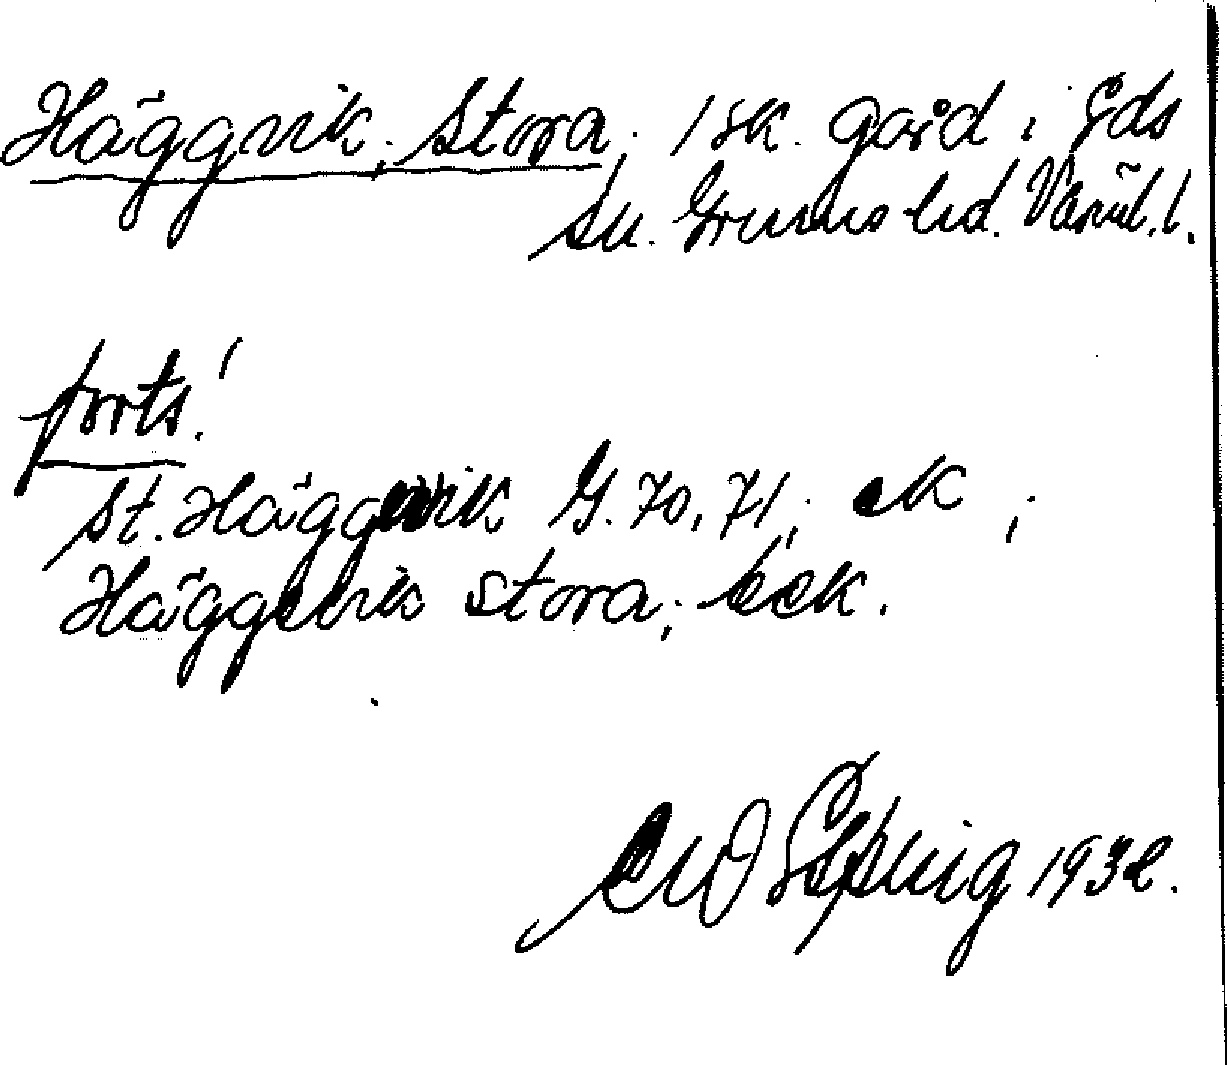 Häggvik, Stora; 1 sk. gård i Eds
sn. Grums hd. Värml. l.
forts!
St. Häggvik G. 70, 71; ek ;
Häggevik Stora; eek.
1932.